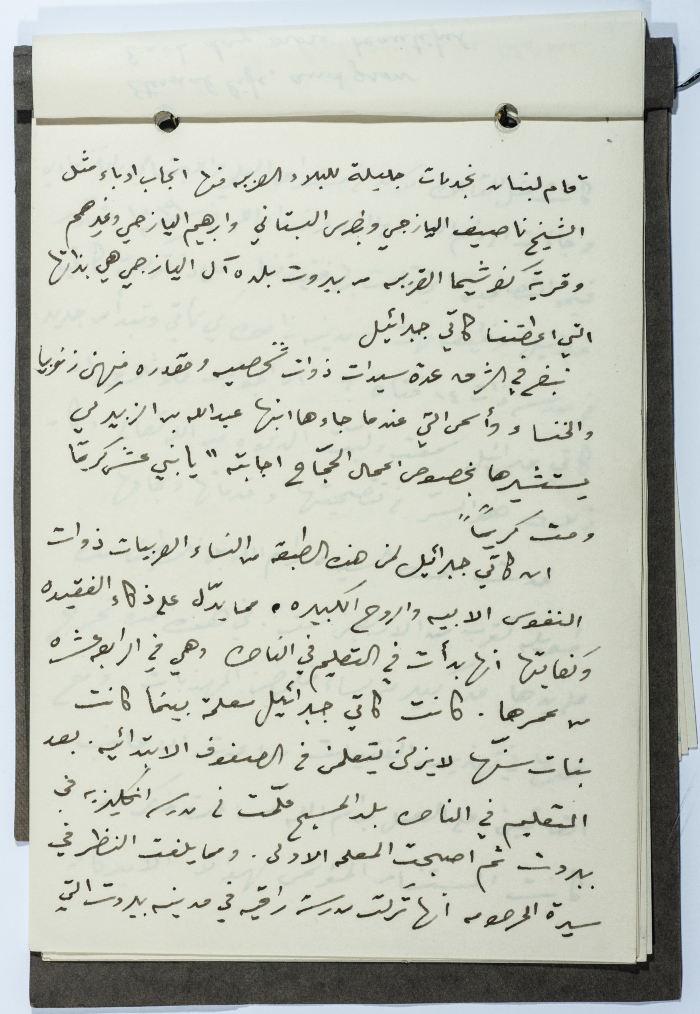 قام لبنان بخدمات جليلة للبلاد العربيه منها انجاب ادباء مثل
الشيخ ناصيف اليازجي وبطرس البستاني وابرهيم اليازجي وغيرهم
وقرية كفرشيما القريبه من بيروت بلده آل اليازجي هي بذاتها
التي اعطتنا كاتي جبرائيل
نبغ في الشرق عدة سيدات ذوات شخصيه ومقدره منهنّ زنوبيا
والخنساء وأسمى التي عندما جاءها ابنها عبدالله بن الزبير لكي
يستشيرها بخصوص اعمال الحجّاج اجابته "يا بني عش كريمًا
ومت كريمًا"
ان كاتي جبرائيل لمن هذه الطبقة من النساء العربيات ذوات
النفوس الابيه والروح الكبيره. مما يدّل على ذكاء الفقيده
وكفايتها انها بدأت في التعليم في الناصره وهي في الرابعه عشره
من عمرها. كانت كاتي جبرائيل معلمة بينما كانت
بنات سنّها لا يزلنَ يتعلمن في الصفوف الابتدائيه. بعد
التعليم في الناصره بلد المسيح علّمت في مدرسه انكليزيه في
بيروت ثم اصبحت المعلمه الاولى. ومما يلفت النظر في
سيرة المرحومه انها تركت مدرسة راقيه في مدينه بيروت التي